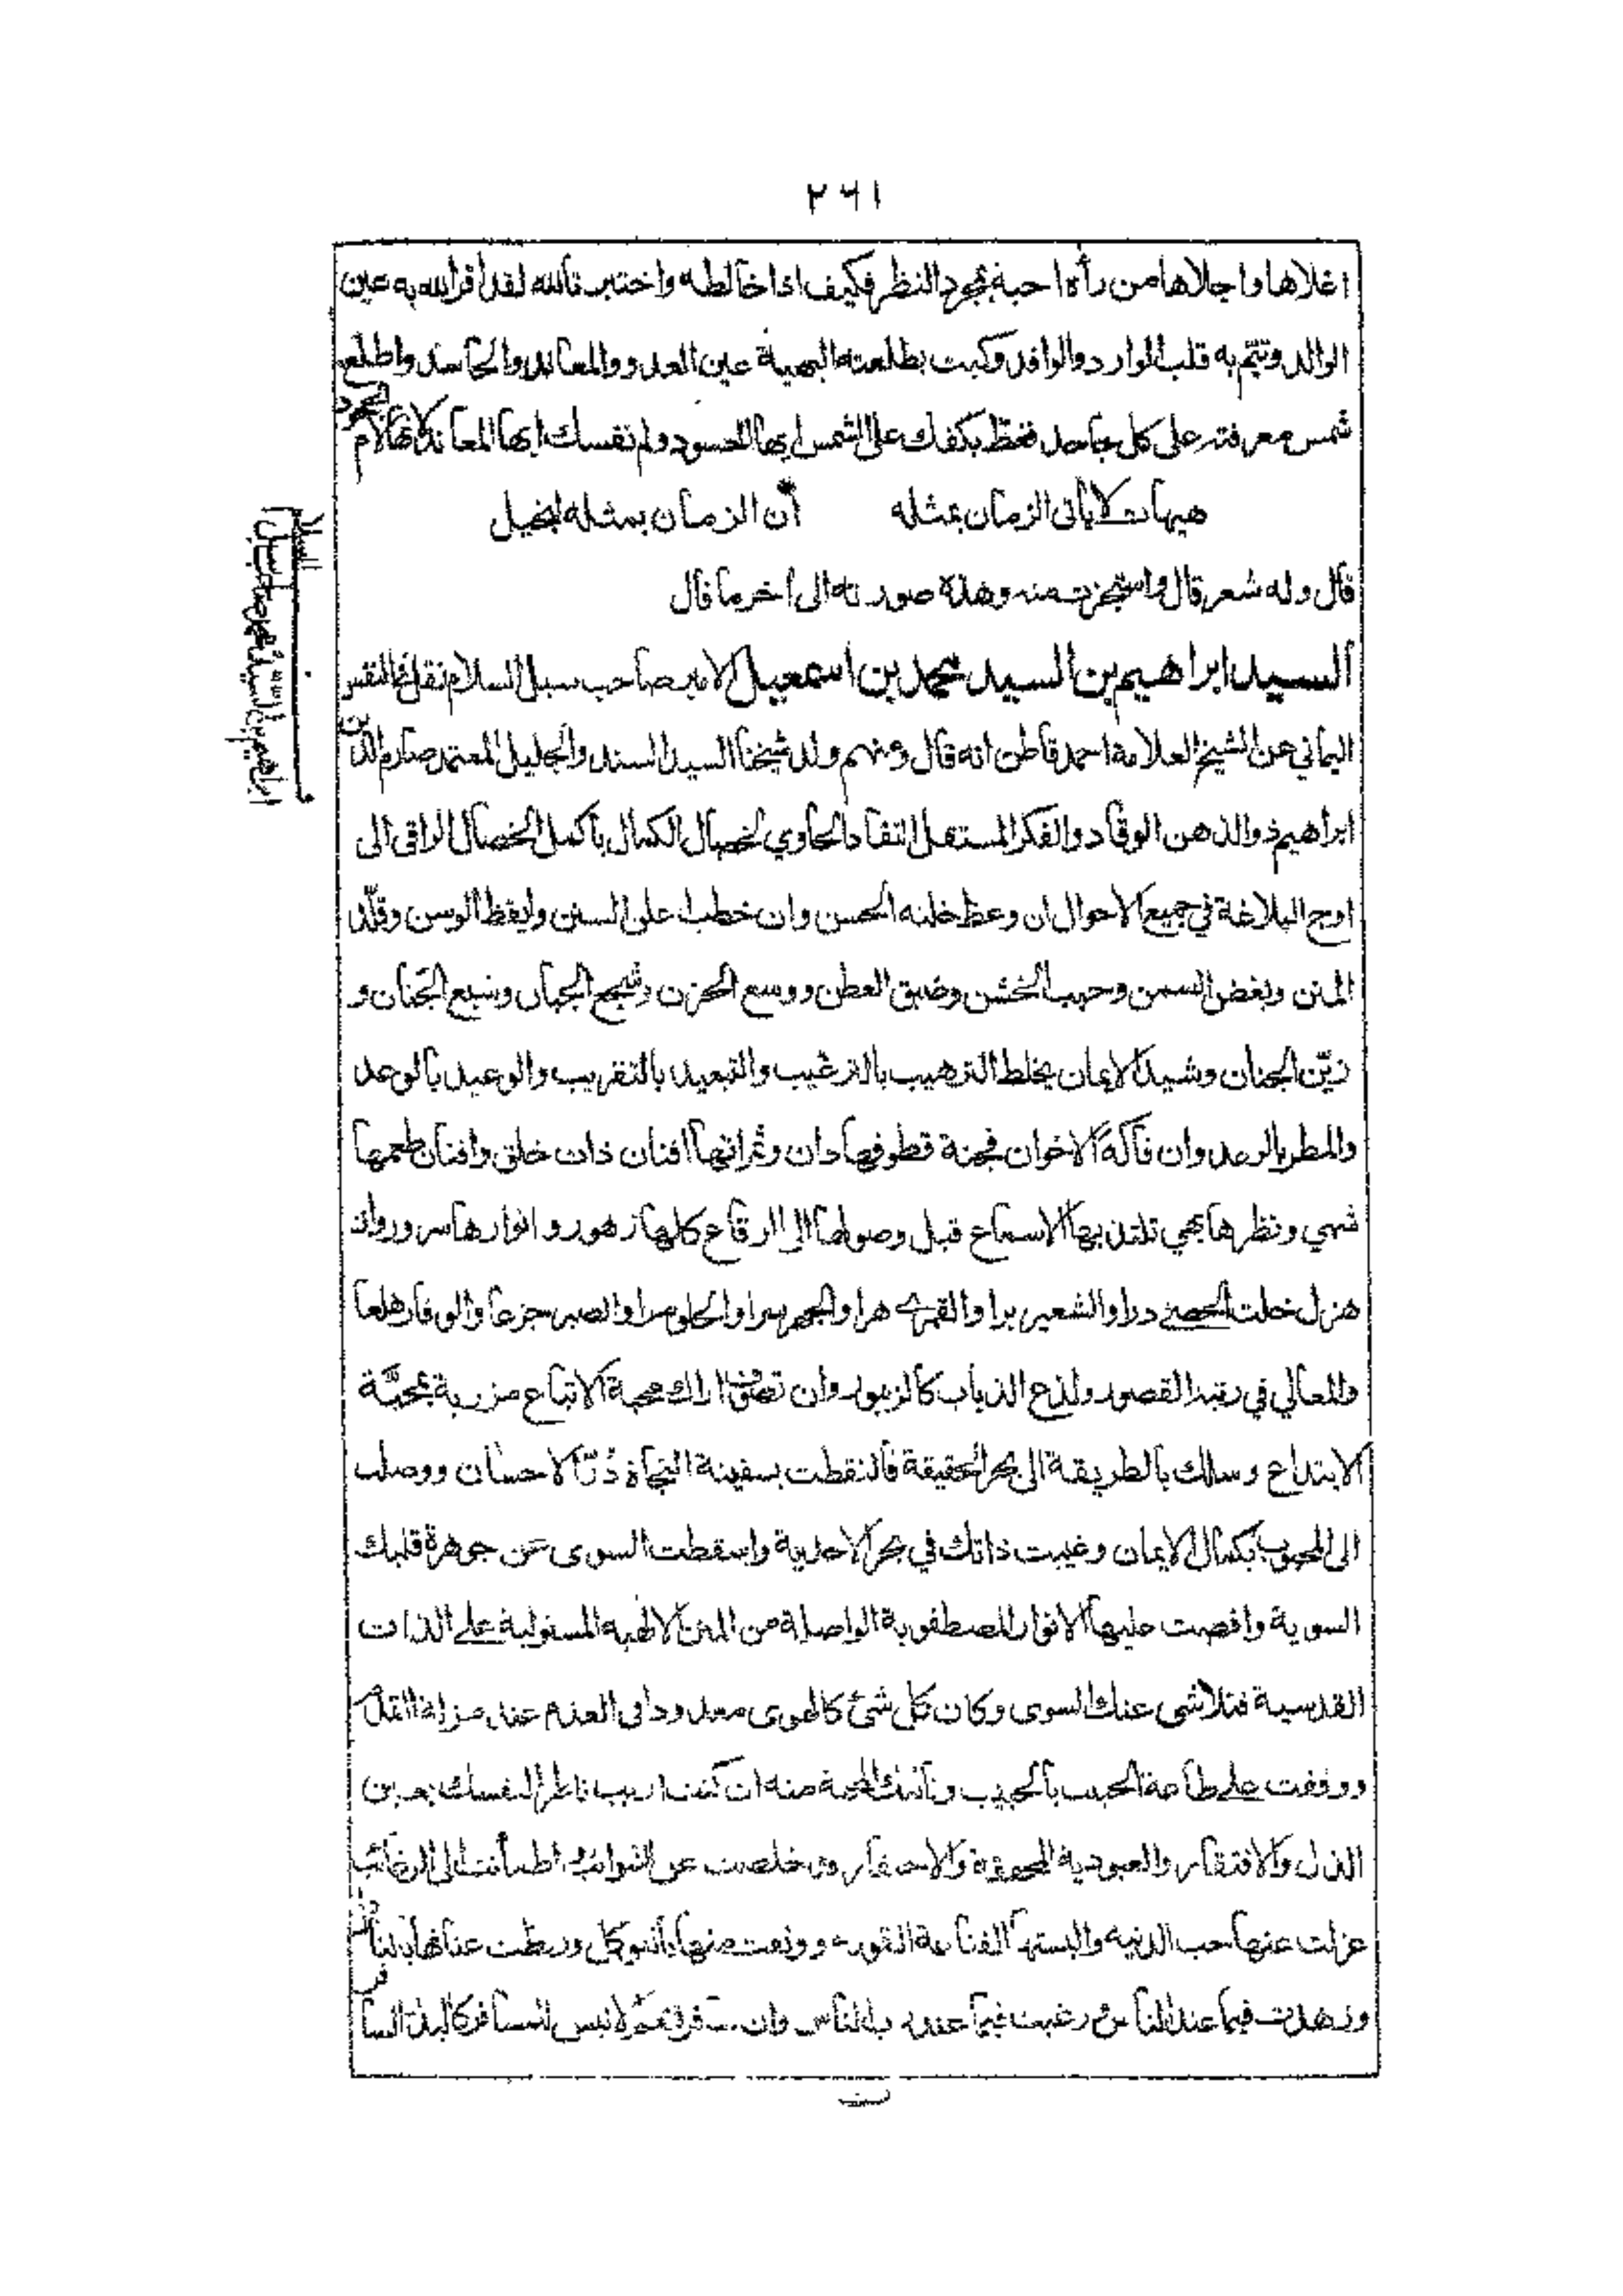 ٢٦١
اغلاها واجلاها من رأه احبة بمجرد النظر فكيف اذا خالطه واختبر تالله لقد اقر الله به عين
الوالد وتيّم به قلب الوارد والوافد وكبت بطلعته البهية عين العدو والمعاند والحاسد واطلع
شمس معرفته على كل جاحد فغطّ بكفك على الشمس ايها الحسود ولم نفسك ايها المعاند
هيهات لا يأتى الزمان بمثله أن الزمان بمثله لبخيل
قال وله شعر قال واستجزت منه وهذه صورته الى أخر ما قال
السيد ابراهيم بن السيد محمد بن اسمعيل الامير صاحب سبل السلام نقل فى النفس
اليماني عن الشيخ العلامة احمد قاطن انه قال ومنهم ولد شيخنا السيد السند والجليل المعتمد صارم الدين
ابراهيم ذو الذهن الوقاد والفكر المستقل النقاد الحاوي لخصال الكمال بأكمل الخصال الراقى الى
اوج البلاغة في جميع الاحوال ان وعظ خلته الحسن وان خطب على السنن وايقظ الوسن وقلّد
المنن وبغض السمن وحبب الخشن وضيق العطن ووسع الحزن وشجع الجبان وشبع الجنان و
زيّن الجنان وشيد الايمان يخلط الترهيب بالترغيب والتبعيد بالتقريب والوعيد بالوعد
والمطر بالرعد وان فاكه الاخوان فجنة قطوفها دان وثمراتها افنان ذات خلق وافنان طعمها
شهي ونظرها بهي تلتذ بها الاسماع قبل وصولها الى الرقاع كلها زهور وانوارها سرور وان
هزل خلت الحصى درا والشعير برا والقمرى هرا والجمر سرا والحلو مرا والصبر جزعا والوقار هلعا
والمعالي في رتبة القصور ولذع الذباب كالزنبور وان تصوّف اراك محبة الاتباع مزرية بمحبّة
الابتداع وسالك بالطريقة الى بحر الحقيقة فالتقطت بسفينة النجاة دُرّ الاحسان ووصلت
الى المحبوب بكمال الايمان وغيبت ذاتك في بحر الاحدية واسقطت السوى عن جوهرة قلبك
السوية وافضت عليها الانوار المصطفوية الواصلة من المنن الالهيه المستولية على الذات
القدسية فتلاشى عنك السوى وكان كل شئ كالهوى معدودا فى العدم عند مزلة القدم
ووقفت على طاعة الحبيب بالحبيب ونأتك المحبة منه ان كنت اريب ناظرا لنفسك بعين
الذل والافتقار والعبودية المحجوزة والاحتقار وقد خلصت عن الشوائب واطمأنت الى الرغائب
عزلت عنها حب الدنيه والبستها القناعة القوية ووزعت منها بالتوكل وربطت عنانها
وزهدت فيما عند الناس رغبت فيما عند رب الناس وان فر لانس المسافر كالبدر السافر
ابراهيم بن السيد محمد صاحب سبل السلام